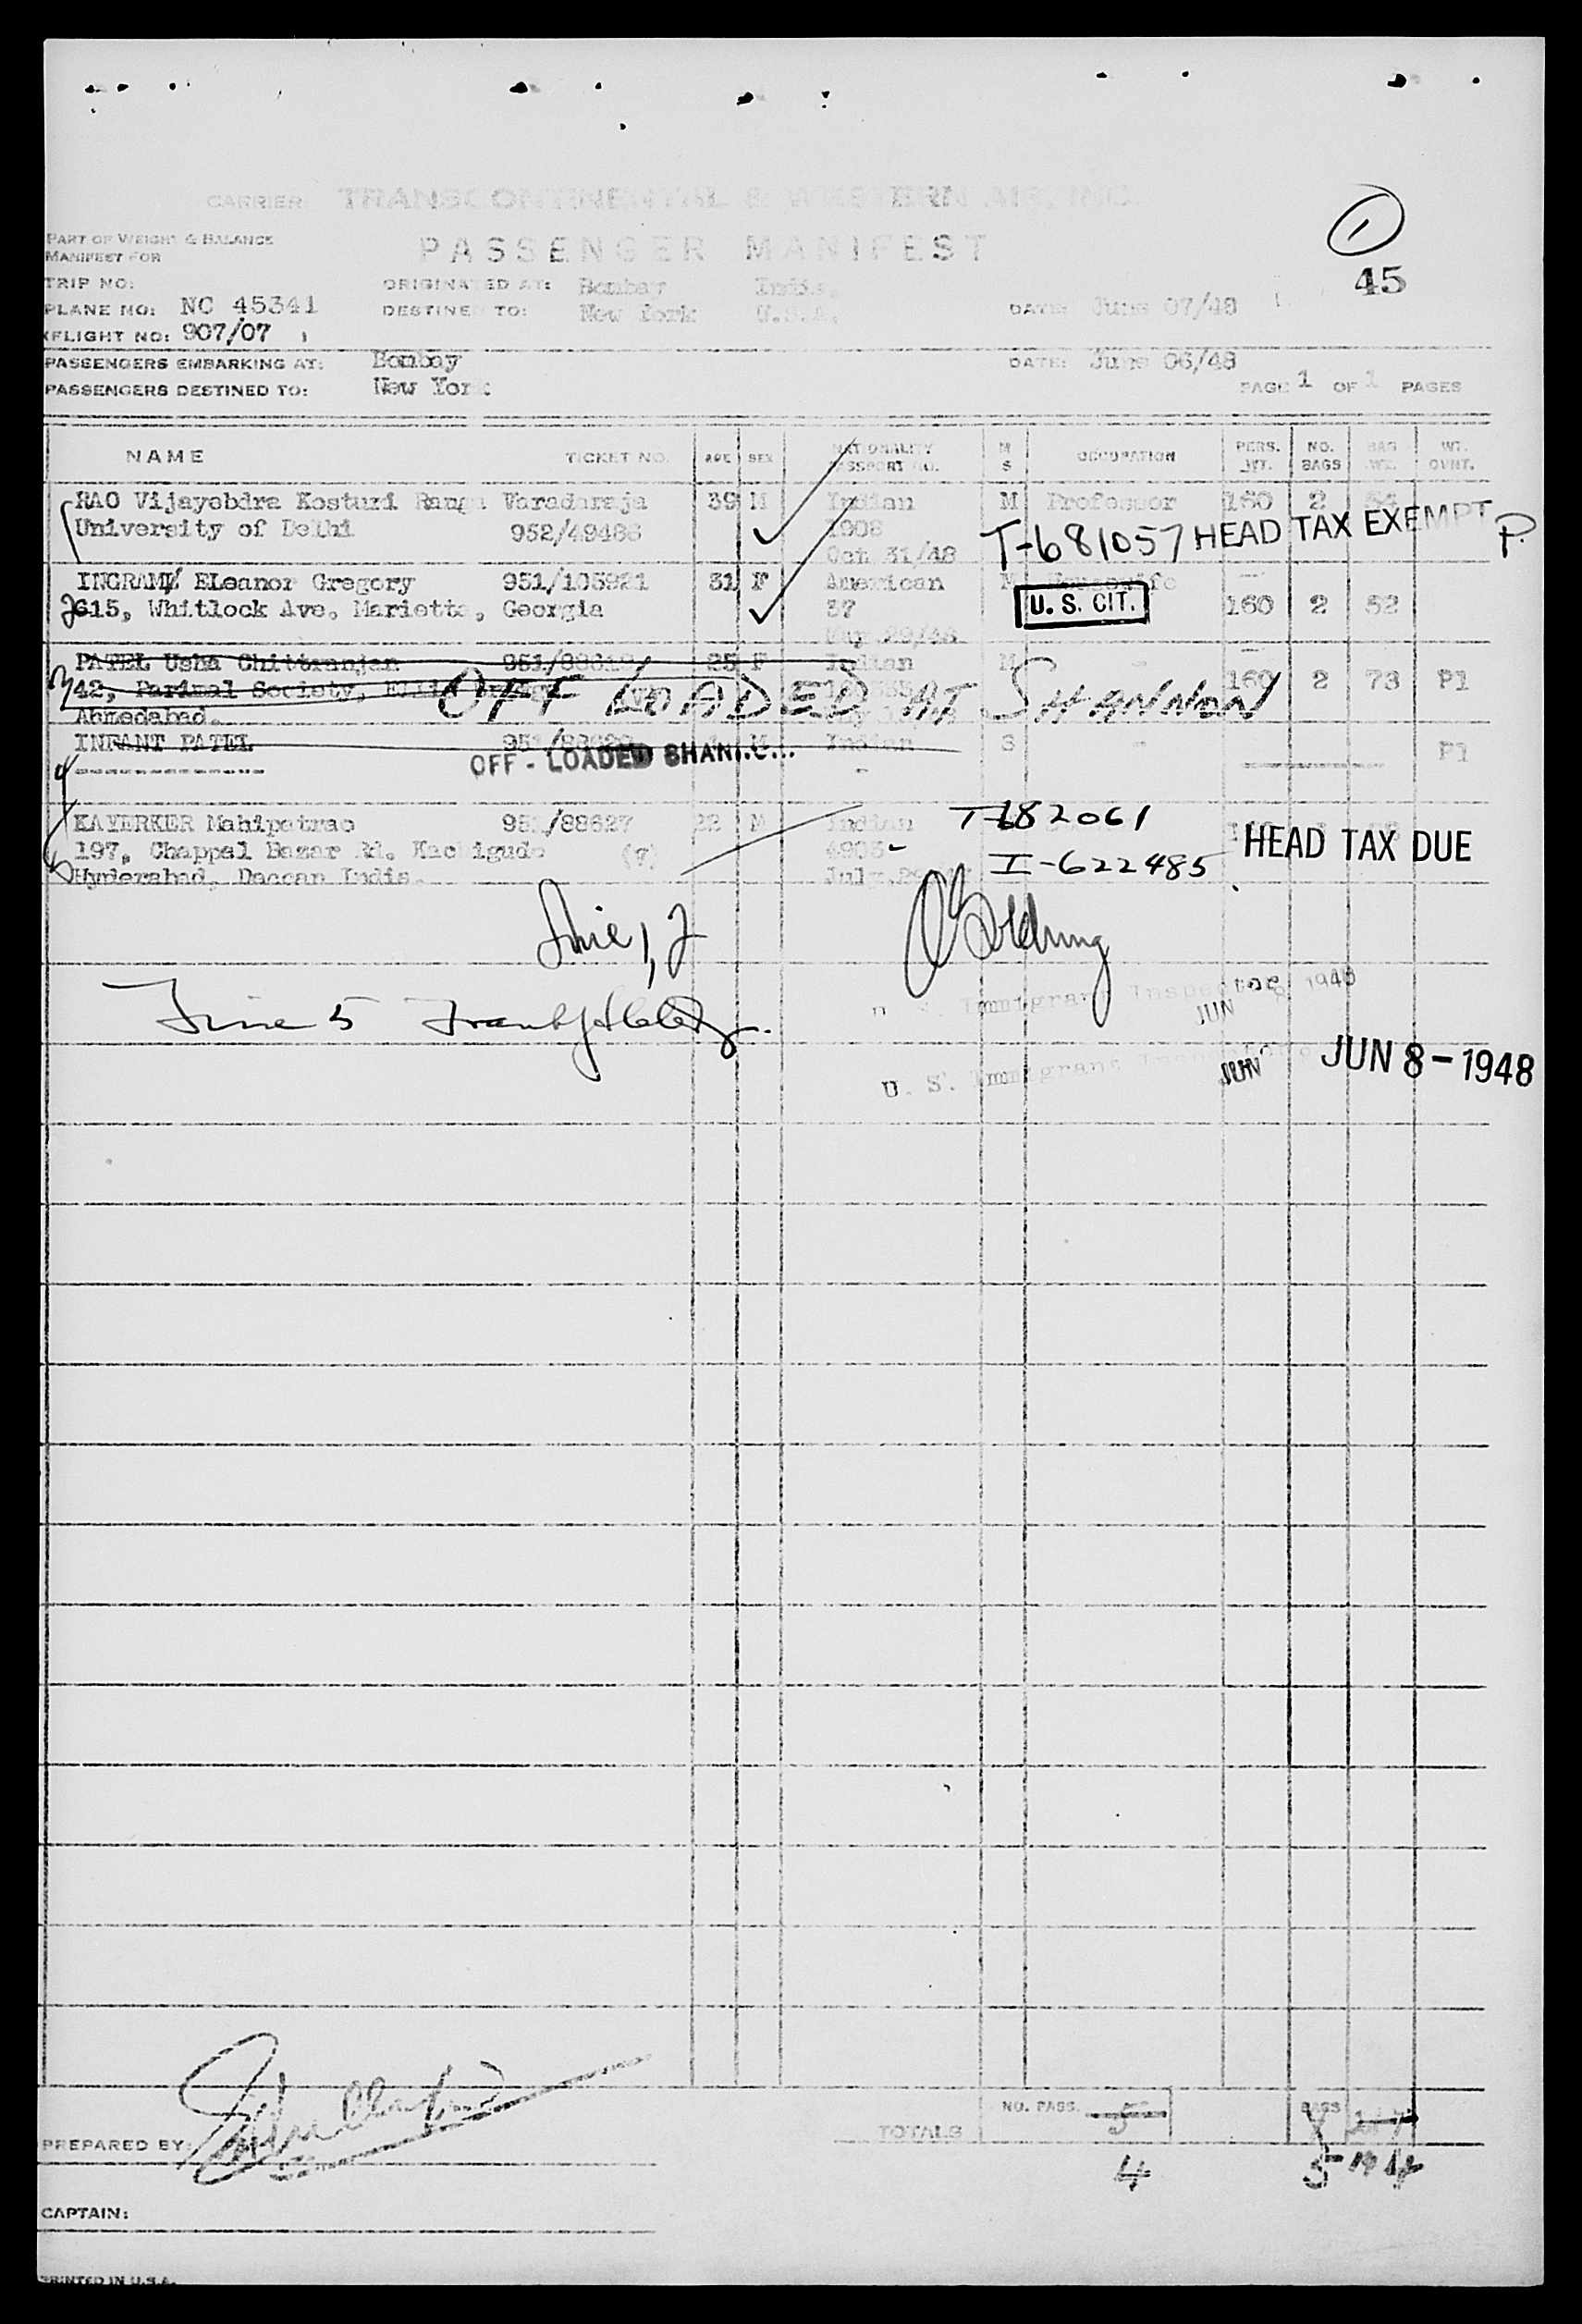 CARRIER TRANSCONTINENTAL & WESTERN AIR, INC.
1
PART OF WEIGHT & BALANCE
MANIFEST FOR
PASSENGER MANIFEST
45
TRIP NO:
ORIGINATED AT: Bombay India.
PLANE NO: NC 45341
DESTINED TO: New York U.S.A.
DATE: June 07/48
(FLIGHT NO: 907/07 )
PASSENGERS EMBARKING AT: Bombay
DATE: June 06/48
PASSENGERS DESTINED TO: New York
PAGE 1 OF 1 PAGES
NAME TICKET NO. AGE SEX NATIONALITY PASSPORT NO. M S OCCUPATION PERS. WT. NO. BAGS BAG WT. WT. OVNT.
RAO Vijayebdra Kosturi Ranga Varadaraja 39 M Indian M Professor 160 2 54
University of Delhi 952/49486 1908 T-681057 HEAD TAX EXEMPT P.
Oct 31/48
INGRAM ELeanor Gregory 951/105921 31 F American M Housewife
2 615, Whitlock Ave. Marietta, Georgia 37 U. S. CIT. 160 2 52
May 29/48
PATEL Usha Chittranjan 25 F Indian M
3 42, Parimal Society, 160 2 73 P1
OFF LOADED AT SHANNON
Ahmedabad.
INFANT PATEL M Indian S P1
4
OFF - LOADED
KAYERKER Mahipatrao 951/88627 22 M Indian T-682061
197, Chappel Bazar Rd. Kachiguda (7) HEAD TAX DUE
5 Hyderabad, Deccan India. July I-622485
Line 1, 2
Line 5
U. S. Immigrant Inspector JUN 8 1948
U. S. Immigrant Inspector JUN JUN 8 - 1948
TOTALS NO. PASS. 5 BAGS
4 5
PREPARED BY:
CAPTAIN:
PRINTED IN U.S.A.